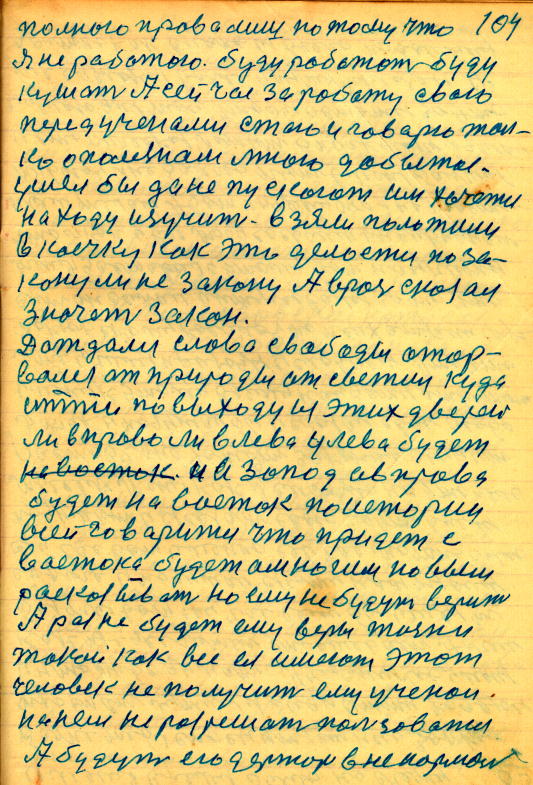 полного права лиш потому что 104
я не работаю. буду работат буду
кушат А сейчас за роботу свою
перед ученами стаю и говарю тол-
ко о полезнам много добытом.
ушел бы да не пускают им хочется
на ходу изучит. взяли положили
в коечку как это делости по за-
кону ли не закону А врач сказал
Значет закон.
Дождали слова свабоды отор-
вался от природы от светил куда
итти по выходу из этих дверей
ли вправо ли влева у лева будет
на восток. и в Запод а вправа
будет на восток по истории
всей говарити что придет с
вастока будет амногим новым
расказыват но ему не будут верит
А раз не будет ему веры жизни
такой как все ея имеют этот
человек не получит ему ученои.
на нем не разрешат ползоватя
А будут его держат в ненормал